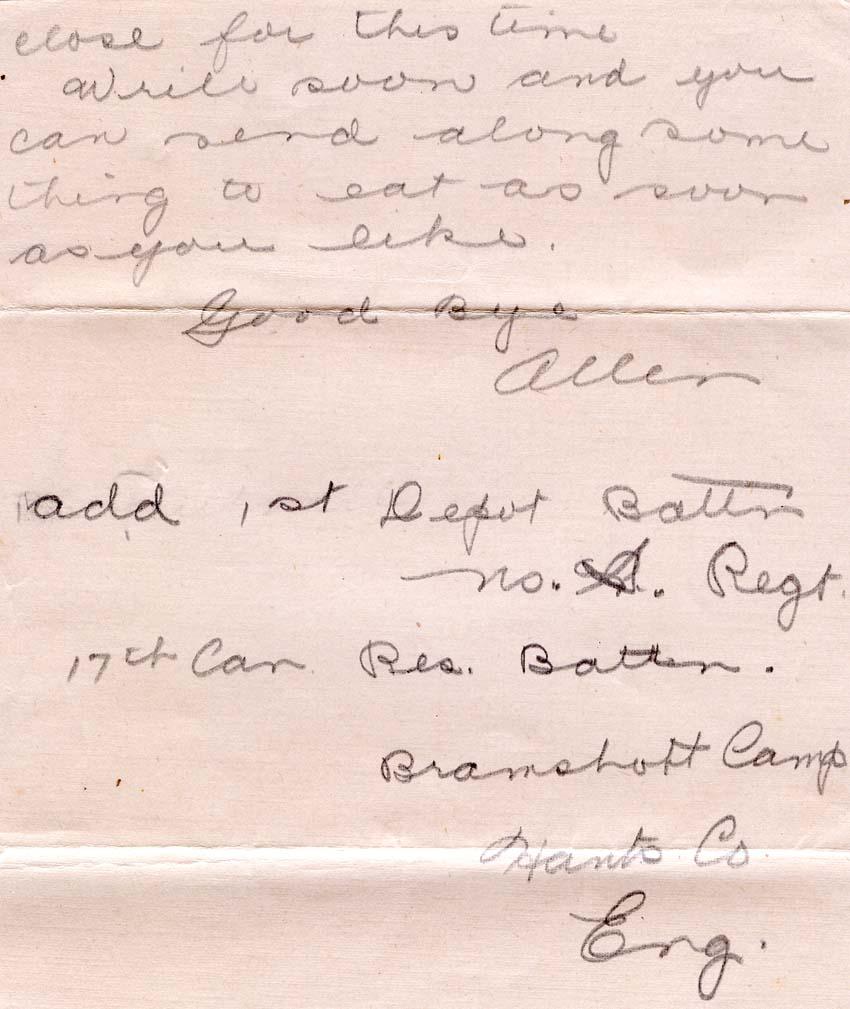 close for this time
Write soon and you
can send along some
thing to eat as soon
as you like.
Good Bye
Allen
add 1st Depot Battn
No. S. Regt.
17th Can Res. Batten.
Bramshott Camp
Hants Co.
Eng.